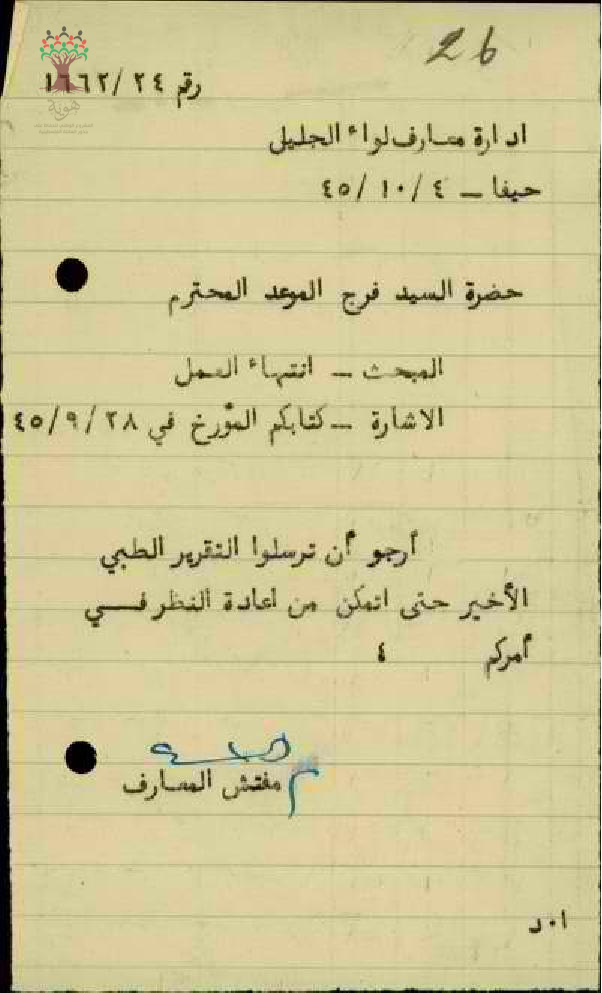 26
رقم ٢٤/ ١٦٦٢
هوية
ادارة معارف لواء الجليل
حيفا – ٤ /١٠ /٤٥
حضرة السيد فرج الموعد المحترم
المبحث – انتهاء العمل
الاشارة – كتابكم المؤرخ في ٢٨ /٩/ ٤٥
أرجو أن ترسلوا التقرير الطبي
الأخير حتى اتمكن من اعادة النظر فــي
أمركم ٤
مفتش المعارف
ا٠د